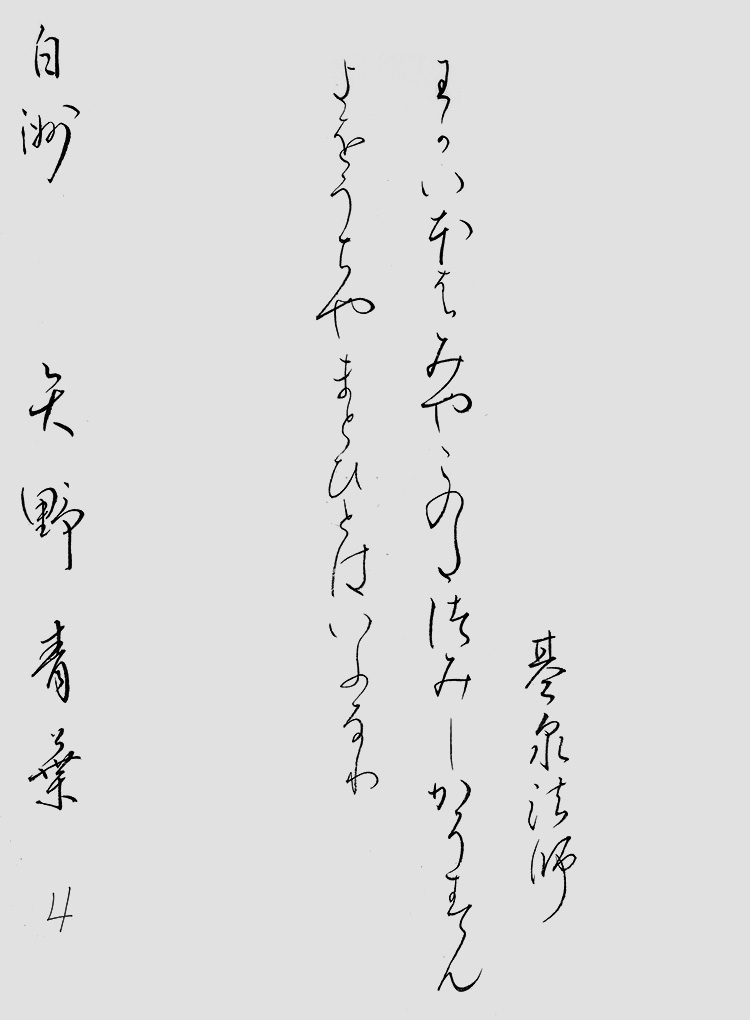 基泉法師
わかいほはみやこのたつみしかそすむ
よをうちやまとひとはいふなり
白洲 矢野青葉 4